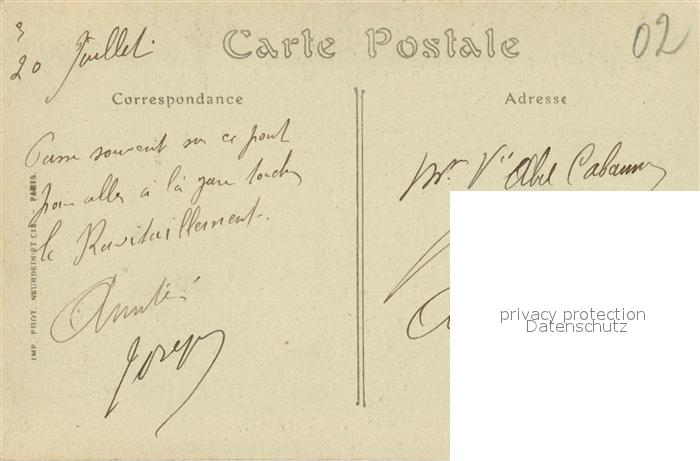 20 Juillet
Carte Postale
02
Correspondance
Adresse
Passe souvent sur ce pont
pour aller à la gare toucher
le Ravitaillement.
Amitiés
Joseph
Mme Vve Abel Cabanne
IMP. PHOT. NEURDEIN ET CIE. PARIS.
privacy protection
Datenschutz